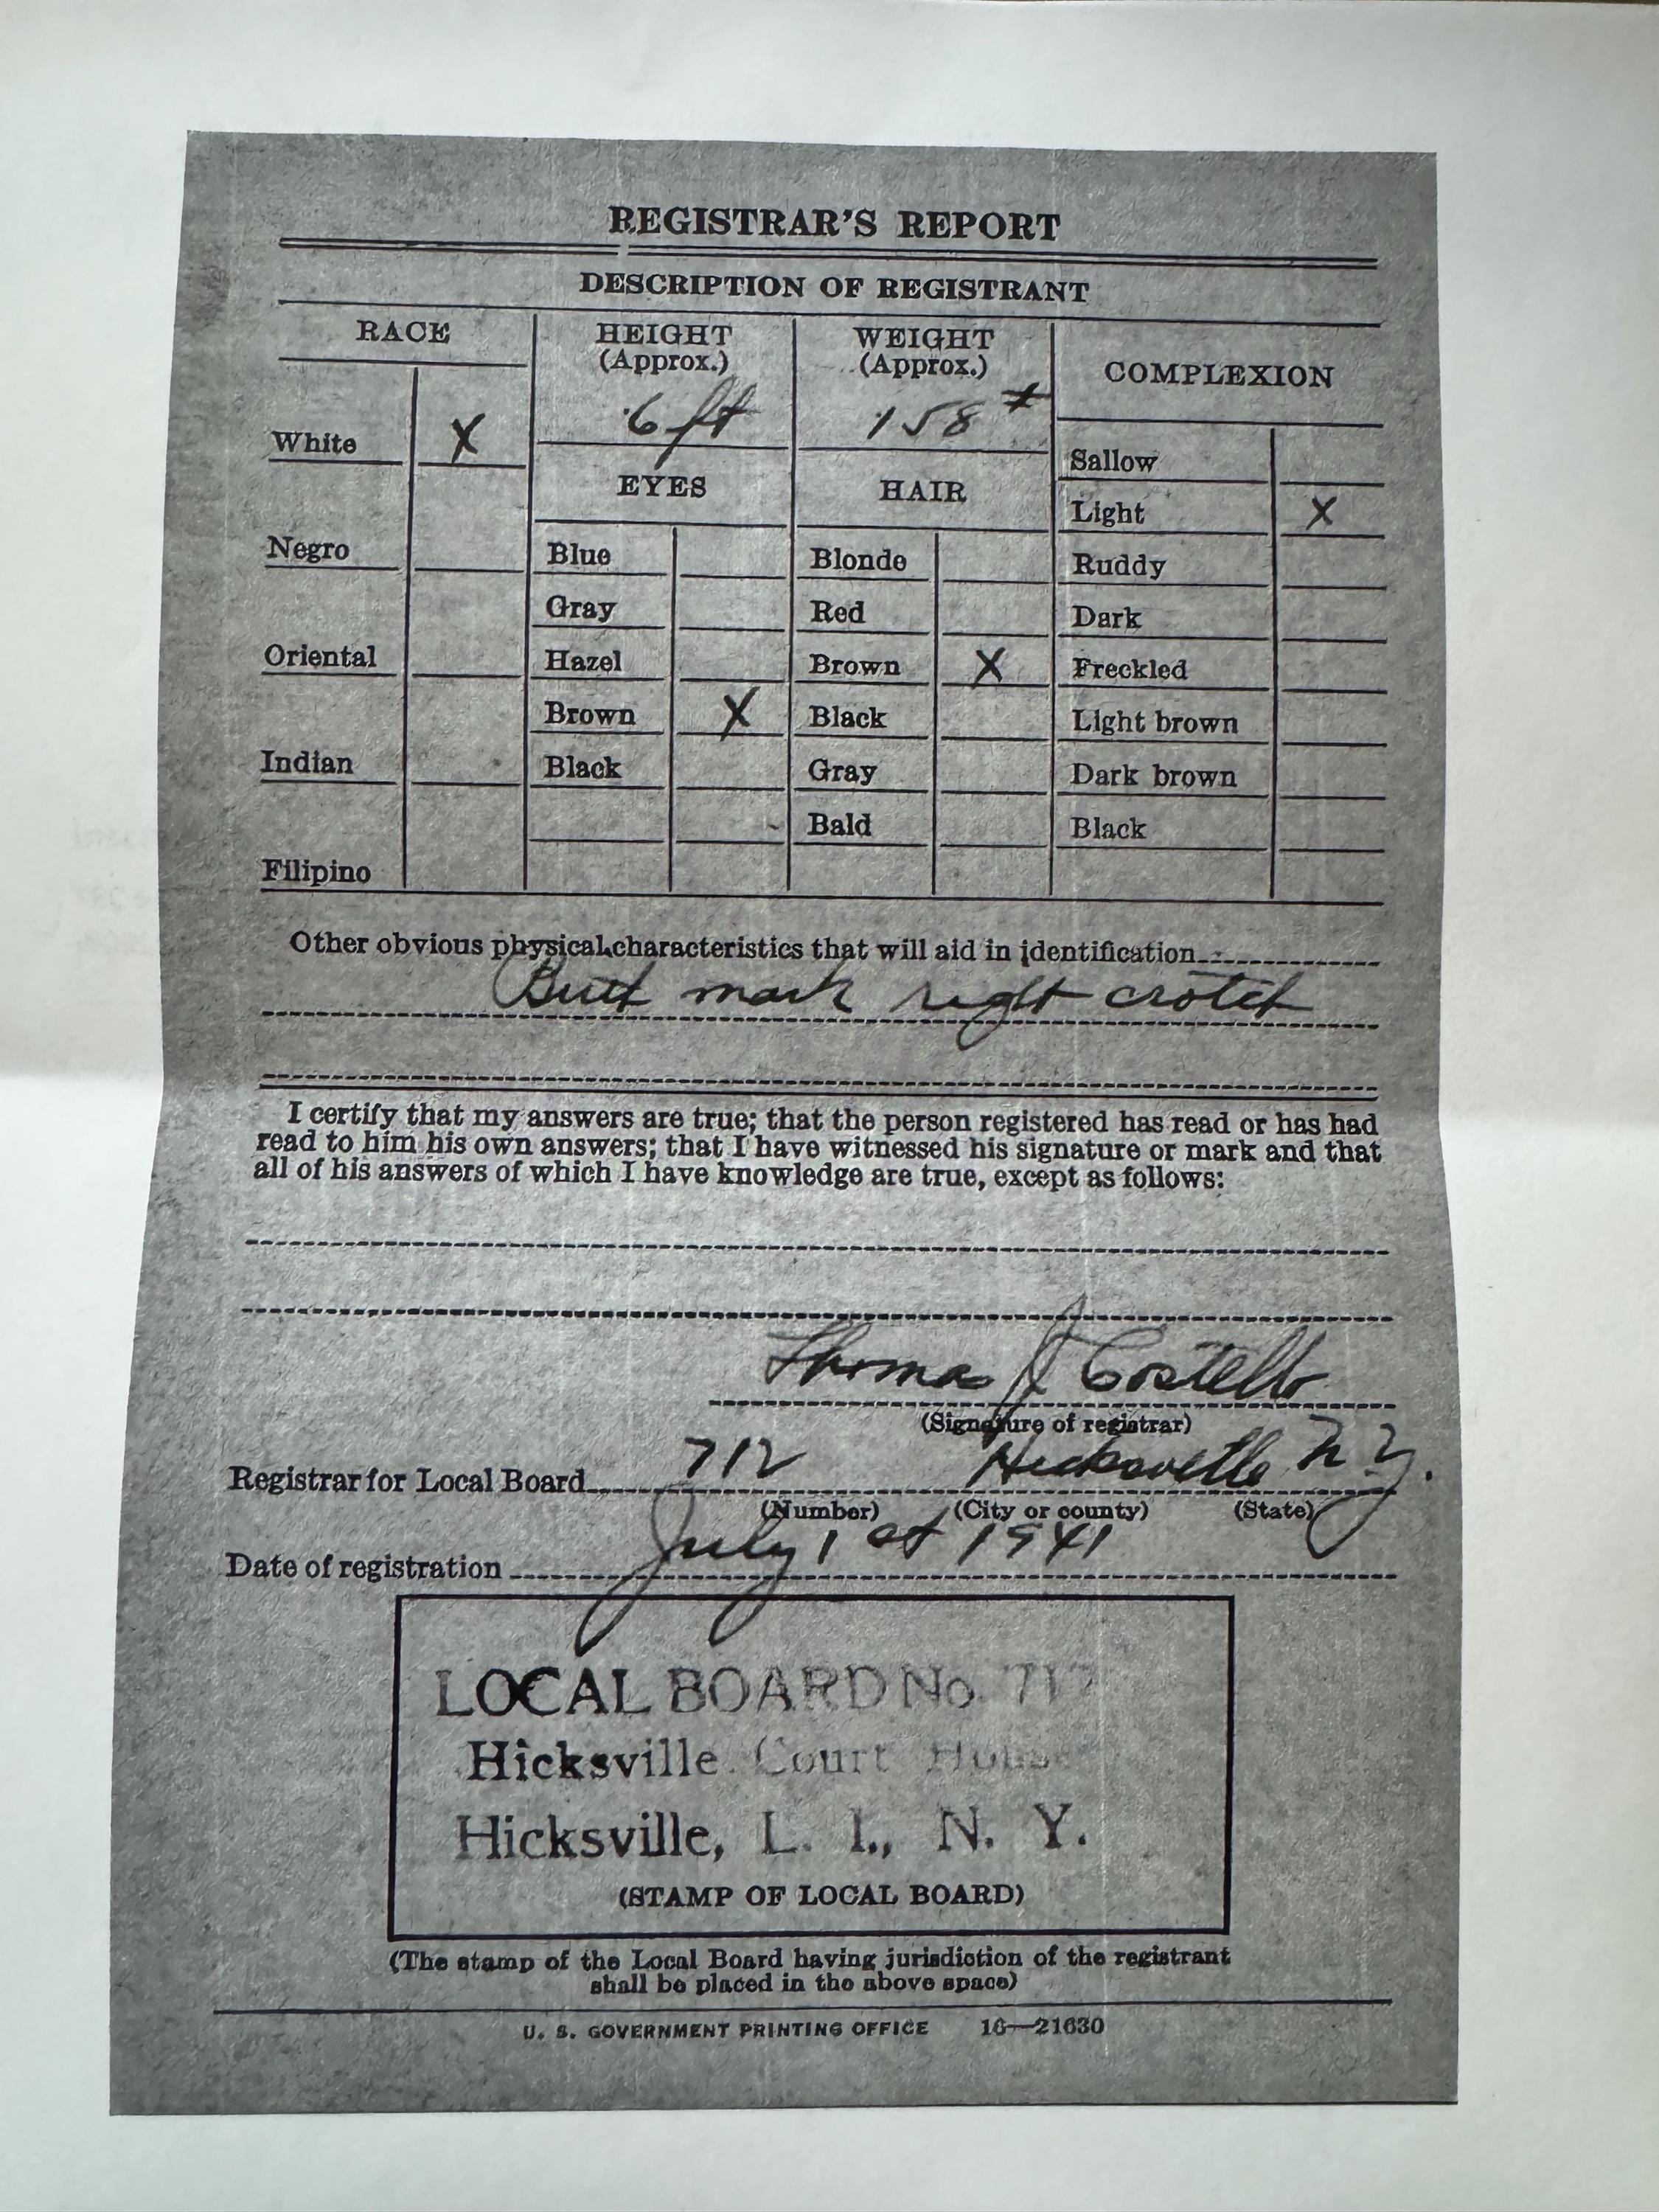 REGISTRAR'S REPORT
DESCRIPTION OF REGISTRANT
RACE
HEIGHT
(Approx.)
WEIGHT
(Approx.)
COMPLEXION
6 ft
158 #
White X
EYES
HAIR
Sallow
Light X
Negro
Blue
Blonde
Ruddy
Gray
Red
Dark
Oriental
Hazel
Brown X
Freckled
Brown X
Black
Light brown
Indian
Black
Gray
Dark brown
Bald
Black
Filipino
Other obvious physical characteristics that will aid in identification
mark right crotch
I certify that my answers are true; that the person registered has read or has had
read to him his own answers; that I have witnessed his signature or mark and that
all of his answers of which I have knowledge are true, except as follows:
Thomas J Costello
(Signature of registrar)
Registrar for Local Board 712 Hicksville N.Y.
(Number) (City or county) (State)
Date of registration July 1st 1941
LOCAL BOARD No.
Hicksville Court House
Hicksville, L. I., N. Y.
(STAMP OF LOCAL BOARD)
(The stamp of the Local Board having jurisdiction of the registrant
shall be placed in the above space)
U. S. GOVERNMENT PRINTING OFFICE 16—21630